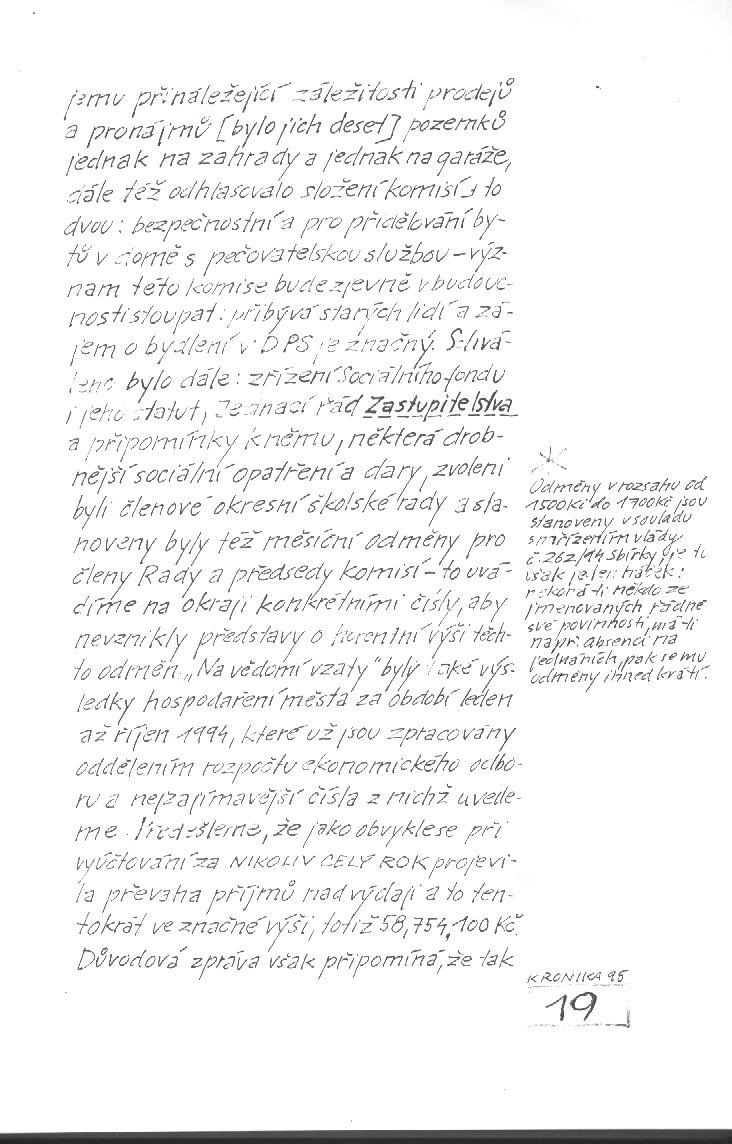 jemu přináležející záležitosti prodejů
a pronájmů [bylo jich deset] pozemků
jednak na zahrady a jednak na garáže,
dále též odhlasovalo složení komisí a to
dvou: bezpečnostní a pro přidělování by-
tů v domě s pečovatelskou službou – výz-
nam této komise bude zjevně v budouc-
nosti stoupat: přibývá starých lidí a zá-
jem o bydlení v DPS je značný. Schvá-
leno bylo dále: zřízení Sociálního fondu
i jeho statut, Jednací řád Zastupitelstva
a připomínky k němu, některá drob-
nější sociální opatření a dary, zvoleni
byli členové okresní školské rady a sta-
noveny byly též měsíční odměny pro
členy Rady a předsedy komisí – to uvá-
díme na okraji konkrétními čísly, aby
nevznikly představy o horentní výši těch-
to odměn. „Na vědomí vzaty" byly také výs-
ledky hospodaření města za období leden
až říjen 1994, které už jsou zpracovány
oddělením rozpočtu ekonomického odbo-
ru a nejzajímavější čísla z nichž uvede-
me. Předešleme, že jako obvykle se při
vyúčtování za NIKOLIV CELÝ ROK projevi-
la převaha příjmů nad výdaji a to ten-
tokrát ve značné výši, totiž 58,754,100 Kč.
Důvodová zpráva však připomíná, že tak
Odměny v rozsahu od
1500Kč do 1700Kč jsou
stanoveny v souladu
s nařízením vlády
č. 262/94 Sbírky, je tu
však jeden háček:
nekoná-li někdo ze
jmenovaných řádně
své povinnosti, má-li
např. absenci na
jednáních, pak se mu
odměny ihned krátí.
KRONIKA 95
19